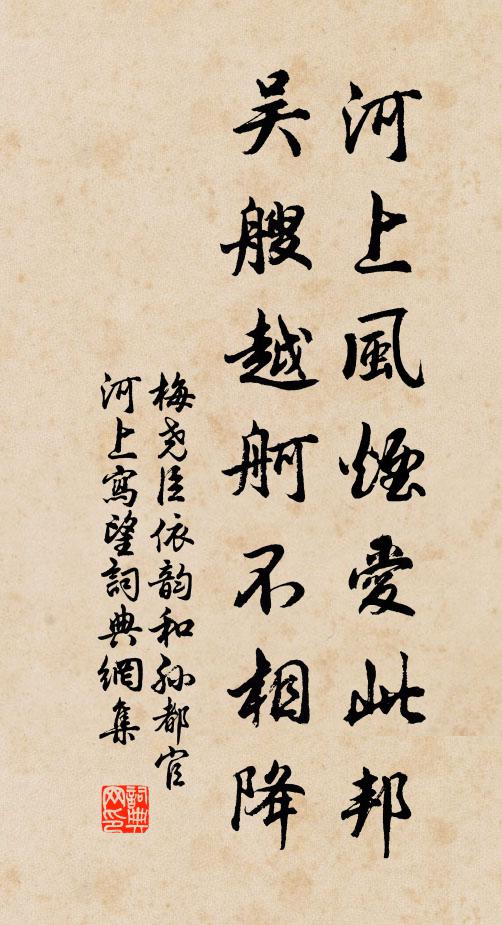 河上風煙愛此邦
吴艘越舸不相降
梅堯臣依韵和孙都官
河上寫望詞典網集
詞典网印